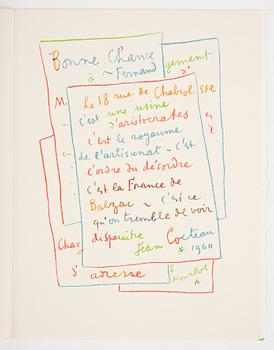 Bonne Chance
à ~ Fernand
gement
M.
Le 18 rue de Chabrol sse
c'est une usine
d'aristocrates
c'est le royaume
de l'artisanat ~ c'est
l'ordre du désordre
c'est la France de
Balzac ~ c'est ce
qu'on tremble de voir
disparaître
Jean Cocteau
* 1960
Chan
d'adresse
S
Mourlot
*